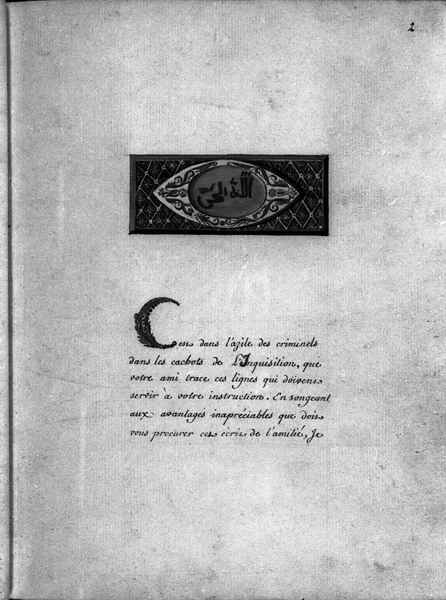 2
Cest dans l'azile des criminels
dans les cachots de L'Inquisition, que
votre ami trace ces lignes qui doivent
servir à votre instruction. En songeant
aux avantages inapréciables que doit
vous procurer cet écrit de l'amitié, Je